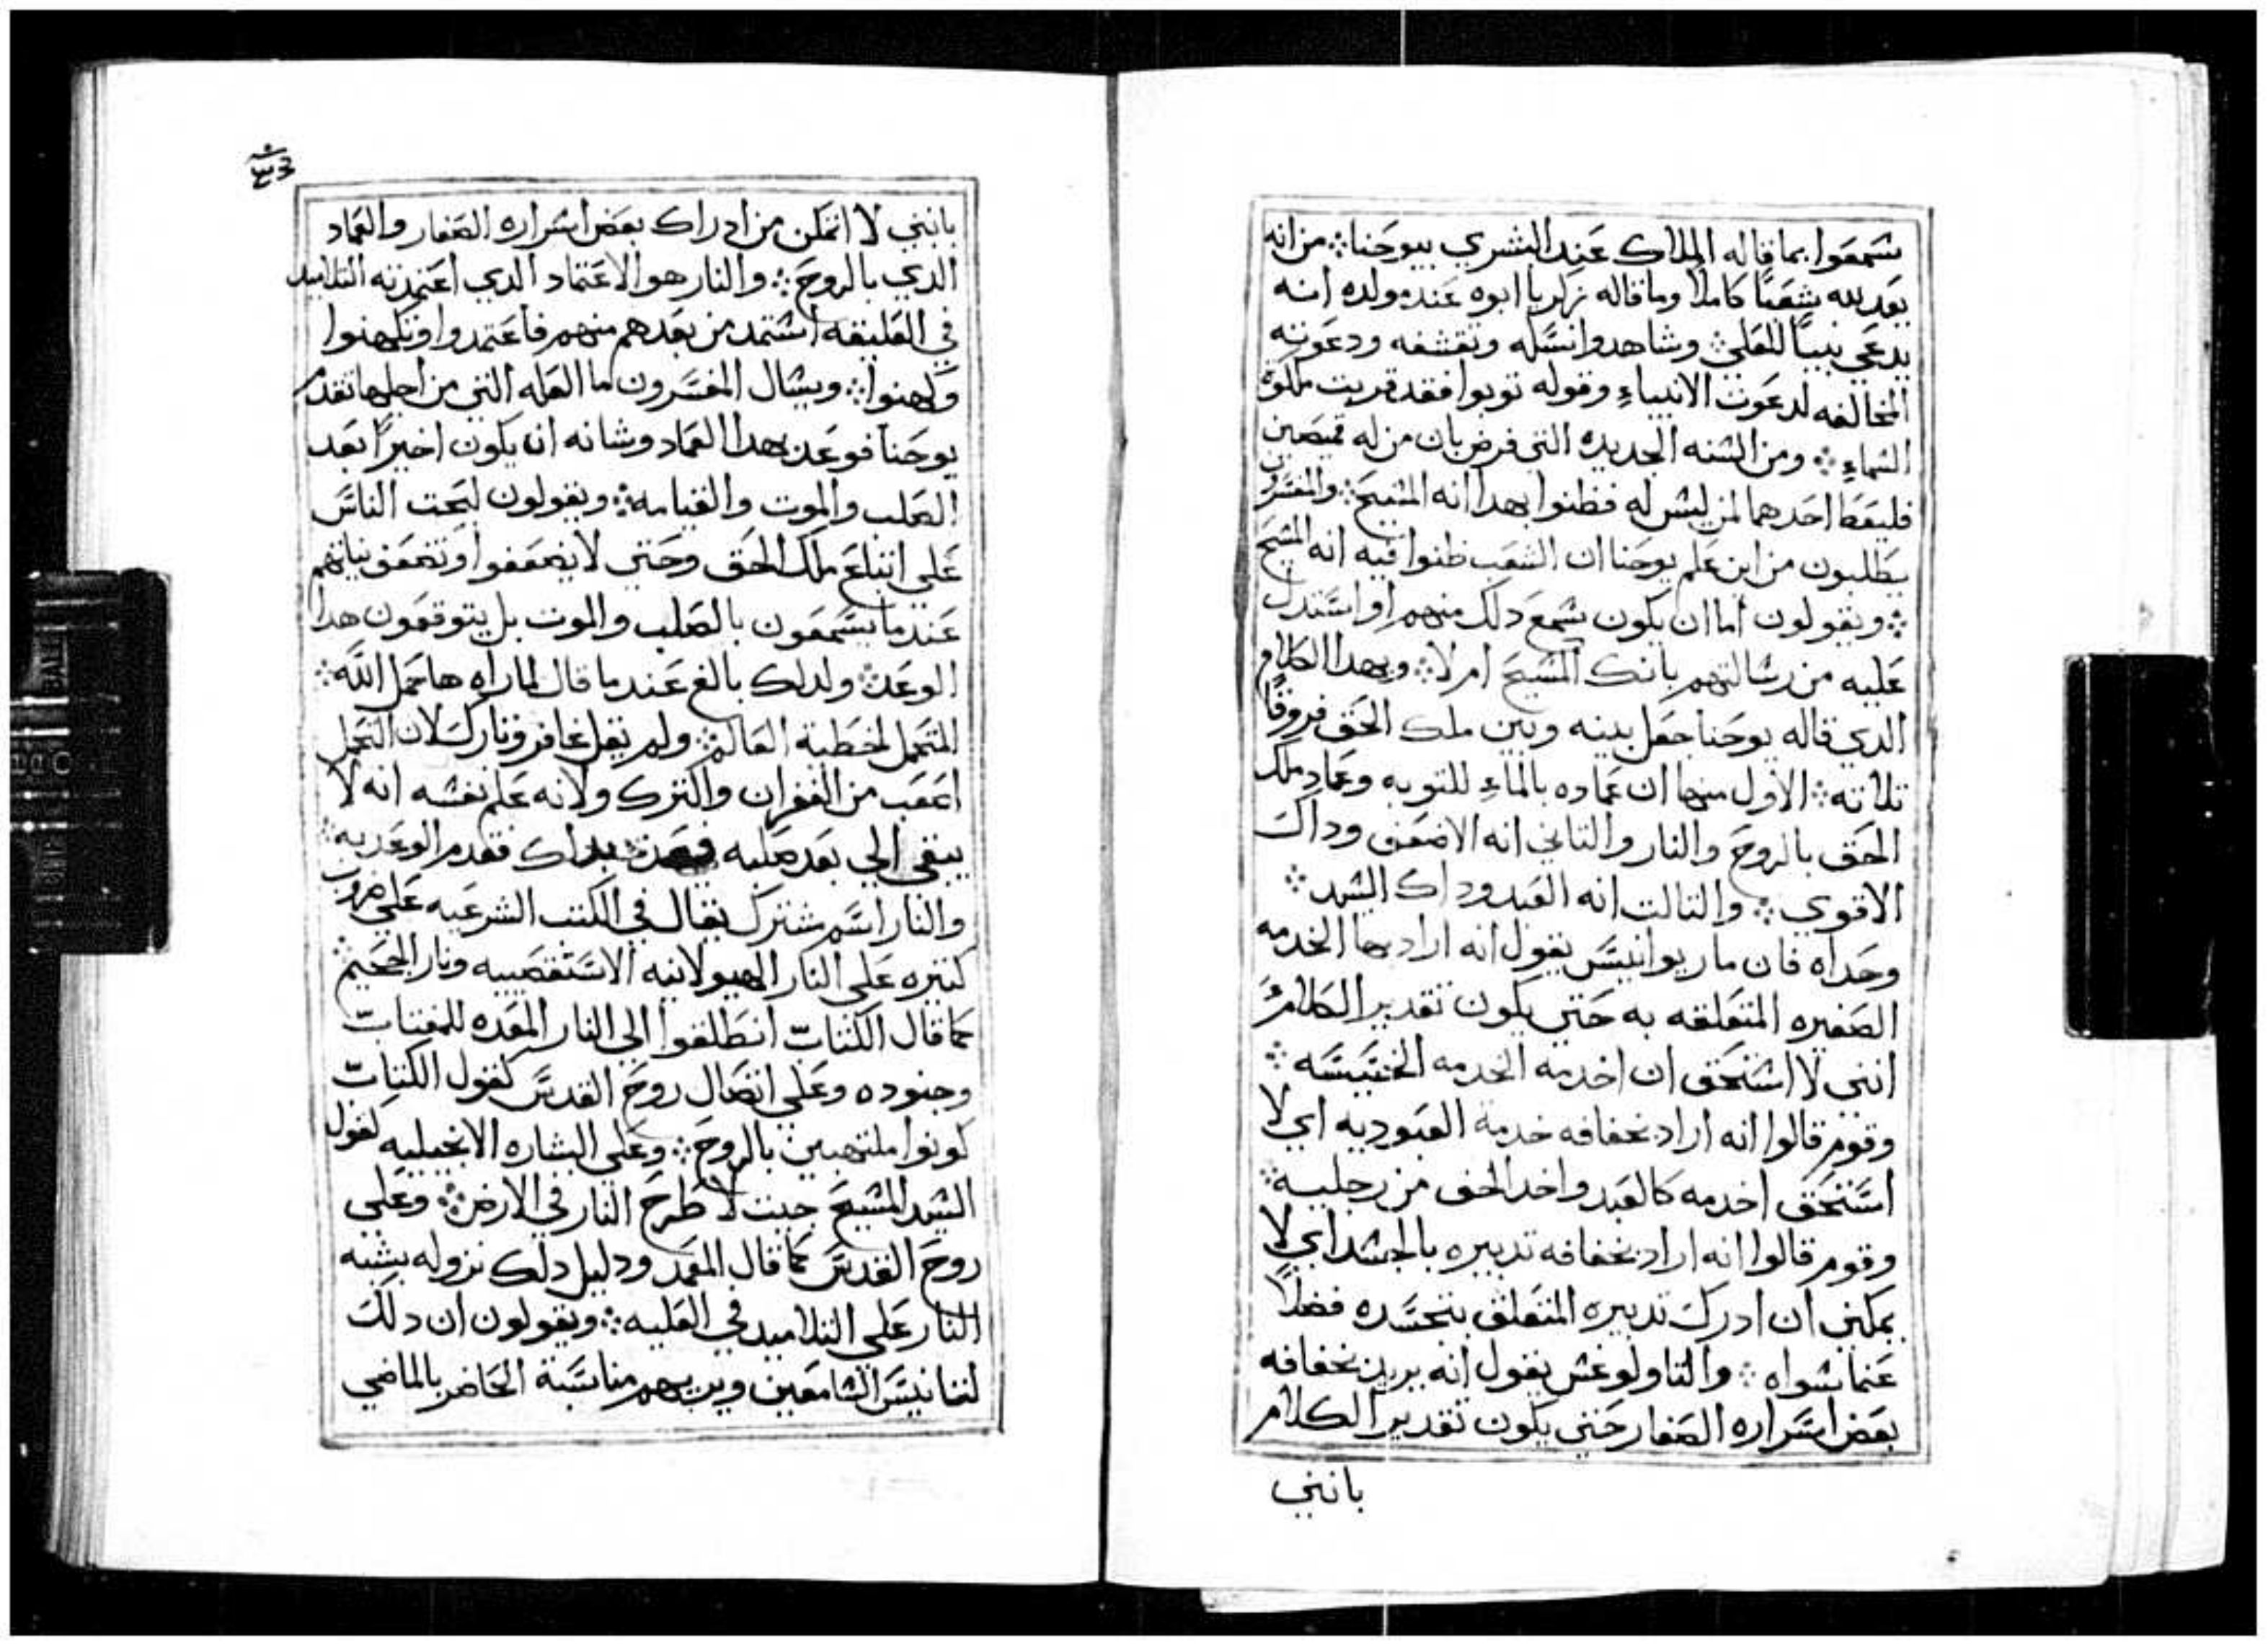 سمعوا بما قاله الملاك عند البشري بيوحنا ⁘ من انه
يعد لله شعبًا كاملا وما قاله زكريا ابوه عند مولده انه
يدعي نبيًا للعلي ⁘ وشاهدوا نسكه وتقشفه ودعوته
المخالفه لدعوت الانبياء وقوله توبوا فقد قربت ملكوة
السماء ⁘ ومن السنه الجديده التي فرض بان من له قميصين
فليعط احدهما لمن ليس له فظنوا بهدا انه المسيح ⁘ والمفسرون
يطلبون من اين علم يوحنا ان الشعب ظنوا فيه انه المسيح
⁘ ويقولون اما ان يكون سمع دلك منهم او استدل
عليه من رسالتهم بانك المسيح ام لا ⁘ وبهدا الكلام
الدي قاله يوحنا جعل بينه وبين ملك الحق فروقًا
تلاته ⁘ الاول منها ان عماده بالماء للتوبه وعماد ملك
الحق بالروح والنار والتاني انه الاضعف وداك
الاقوي ⁘ والتالت انه العبد وداك السيد ⁘
وحداه فان ماريوانيس يقول انه اراد بها الخدمه
الصغيره المتعلقه به حتي يكون تقدير الكلام
انني لا استحق ان اخدمه الخدمه الخسيسه ⁘
وقوم قالوا انه اراد بخفافه خدمة العبوديه اي لا
استحق اخدمه كالعبد واخد الخف من رجليه ⁘
وقوم قالوا انه اراد بخفافه تدبيره بالجسد اي لا
يمكنني ان ادرك تدبيره المتعلق بتجسده فضلًا
عنما سواه ⁘ والتاولوغس يقول انه يريد بخفافه
بعض اسراره الصغار حتي يكون تقدير الكلام
بانني
بانني لا اتمكن من ادراك بعض اسراره الصغار والعماد
الدي بالروح ⁘ والنار هو الاعتماد الدي اعتمدته التلاميد
في العليقه استمد من بعدهم منهم فاعتمدوا وتكهنوا
وكهنوا ⁘ ويسال المفسرون ما العله التي من اجلها تقدم
يوحنا فوعد بهدا العماد وشانه ان يكون اخيرًا بعد
الصلب والموت والقيامه ⁘ ويقولون ليحت الناس
علي اتباع ملك الحق وحتي لا يضعفوا وتضعف نياتهم
عند ما يسمعون بالصلب والموت بل يتوقعون هدا
الوعد ⁘ ولدلك بالغ عند ما قال لما راه ها حمل الله ⁘
المتحمل لخطية العالم ⁘ ولم يقل غافر وتارك لان التحمل
اصعب من الغفران والترك ولانه علم نفسه انه لا
يبقي الي بعد صلبه بداك فقدم الوعد به ⁘
والنار اسم شترك يقال في الكتب الشرعيه علي ضروب
كتيره علي النار الهيولانيه الاستقصييه ونار الجحيم ⁘
كما قال الكتاب انطلقوا الي النار المعده للمغتاب
وجنوده وعلي اتصال روح القدس كقول الكتاب
كونوا ملتهبين بالروح ⁘ وعلي البشاره الانجيليه كقول
السيد المسيح جيت لاطرح النار في الارض ⁘ وعلي
روح القدس كما قال المعمد ودليل دلك نزوله بشبه
النار علي التلاميد في العليه ⁘ ويقولون ان دلك
لتانيس السامعين ويريهم مناسبة الحاضر بالماضي